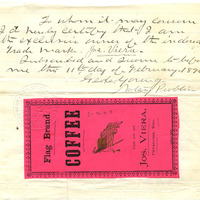 To whom it may concern
I do hereby certify that I am
the exclusive owner of the
Trade Mark Jos. Viera.
Subscribed and Sworn to before
me this 11th day of February
Notary Public
Flag Brand
COFFEE
JOS. VIERA,